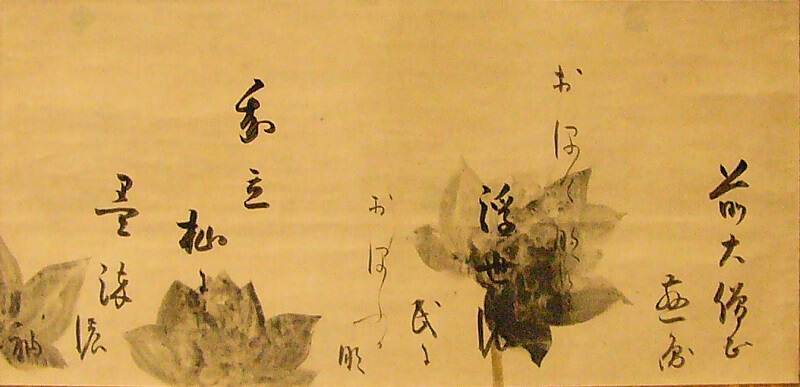 前大僧正
慈圓
おほけなく
浮世の
民に
おほふか
な
我立
杣に
墨染
濃
袖